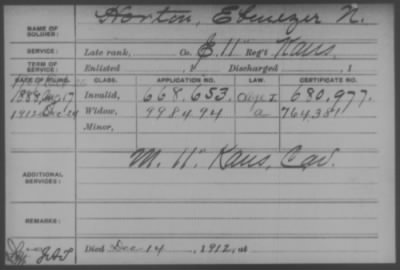 NAME OF SOLDIER: Horton, Ebenezer N.
SERVICE: Late rank, Co. E. 11" Reg't Kans.
TERM OF SERVICE: Enlisted , 1 Discharged , 1
DATE OF FILING. CLASS. APPLICATION NO. LAW. CERTIFICATE NO.
1888, Aug. 17 Invalid, 668.653. 680,977.
1912 Dec 24 Widow, 998494 a 764387
Minor,
ADDITIONAL SERVICES: M. 11" Kans. Cav.
REMARKS:
Died Dec 14, 1912, at